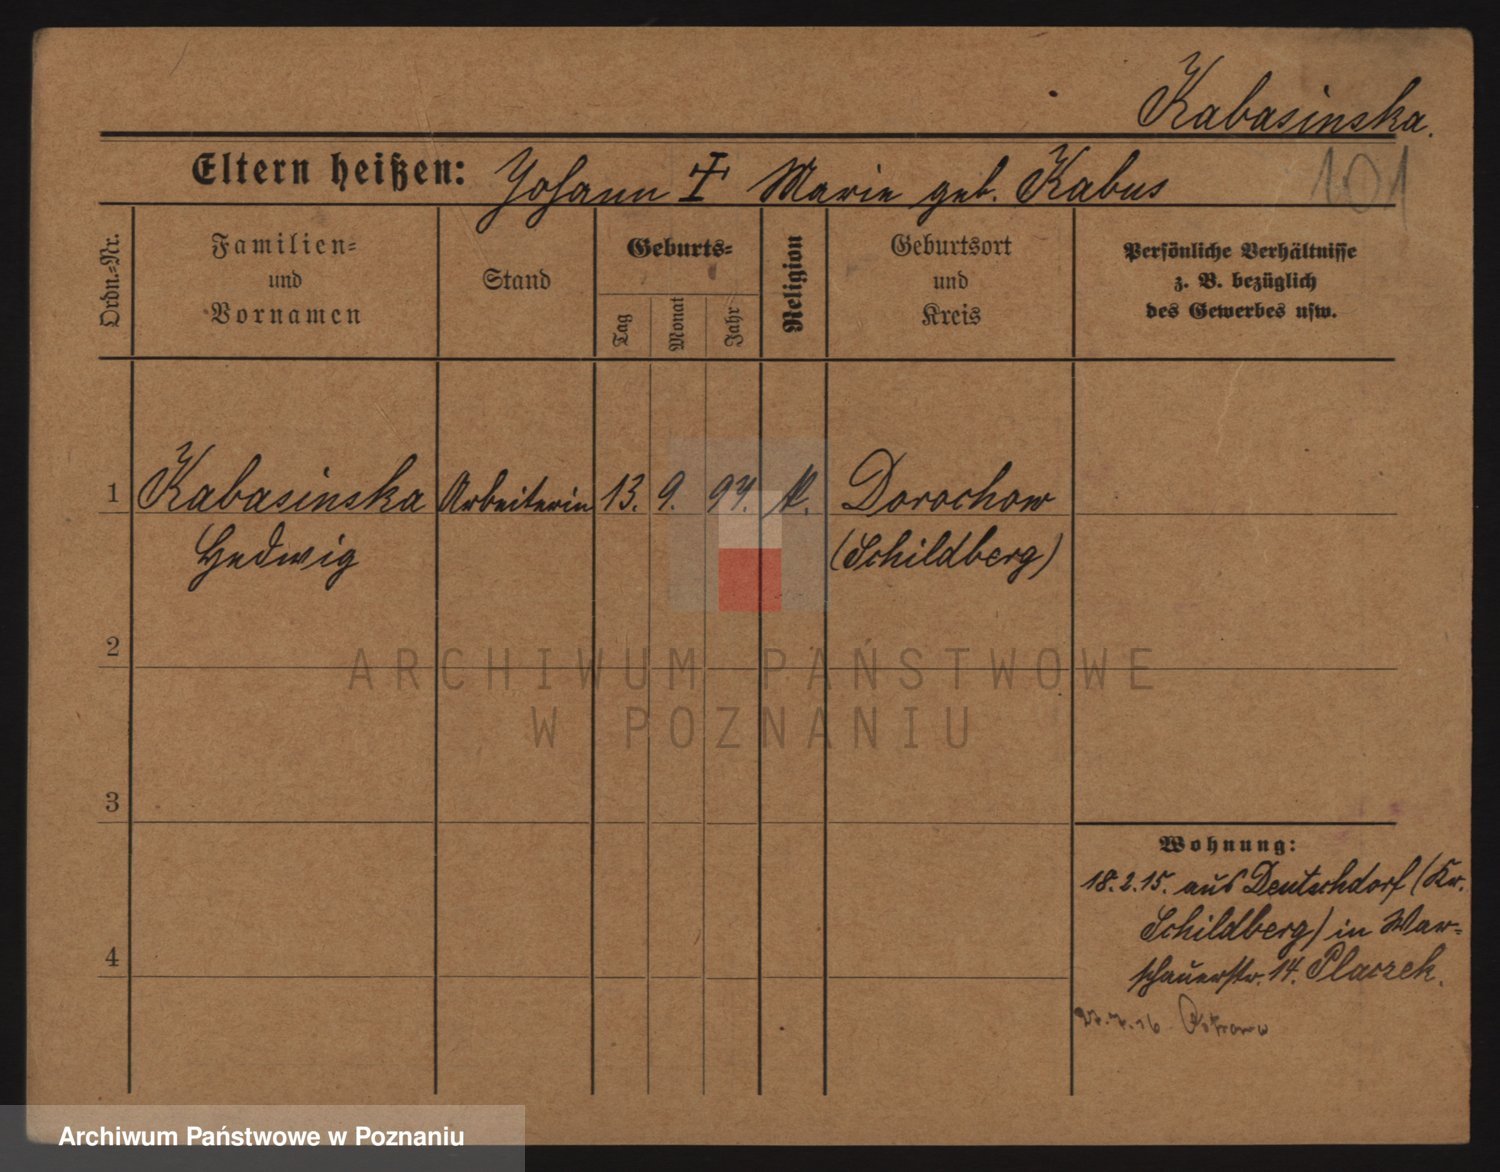 Kabasinska.
Eltern heißen: Johann ☩ Marie geb. Kabus
101
Ordn.-Nr.
Familien-
und
Vornamen
Stand
Geburts-
Tag
Monat
Jahr
Religion
Geburtsort
und
Kreis
Persönliche Verhältnisse
z. B. bezüglich
des Gewerbes usw.
1 Kabasinska Arbeiterin 13. 9. 94. k. Dorochow
Hedwig (Schildberg)
2
ARCHIWUM PAŃSTWOWE
W POZNANIU
3
Wohnung:
18.2.15. aus Deutschdorf (Kr.
Schildberg) in War-
schauerstr. 14. Placzek.
4
27.7.16 Ostrowo
Archiwum Państwowe w Poznaniu